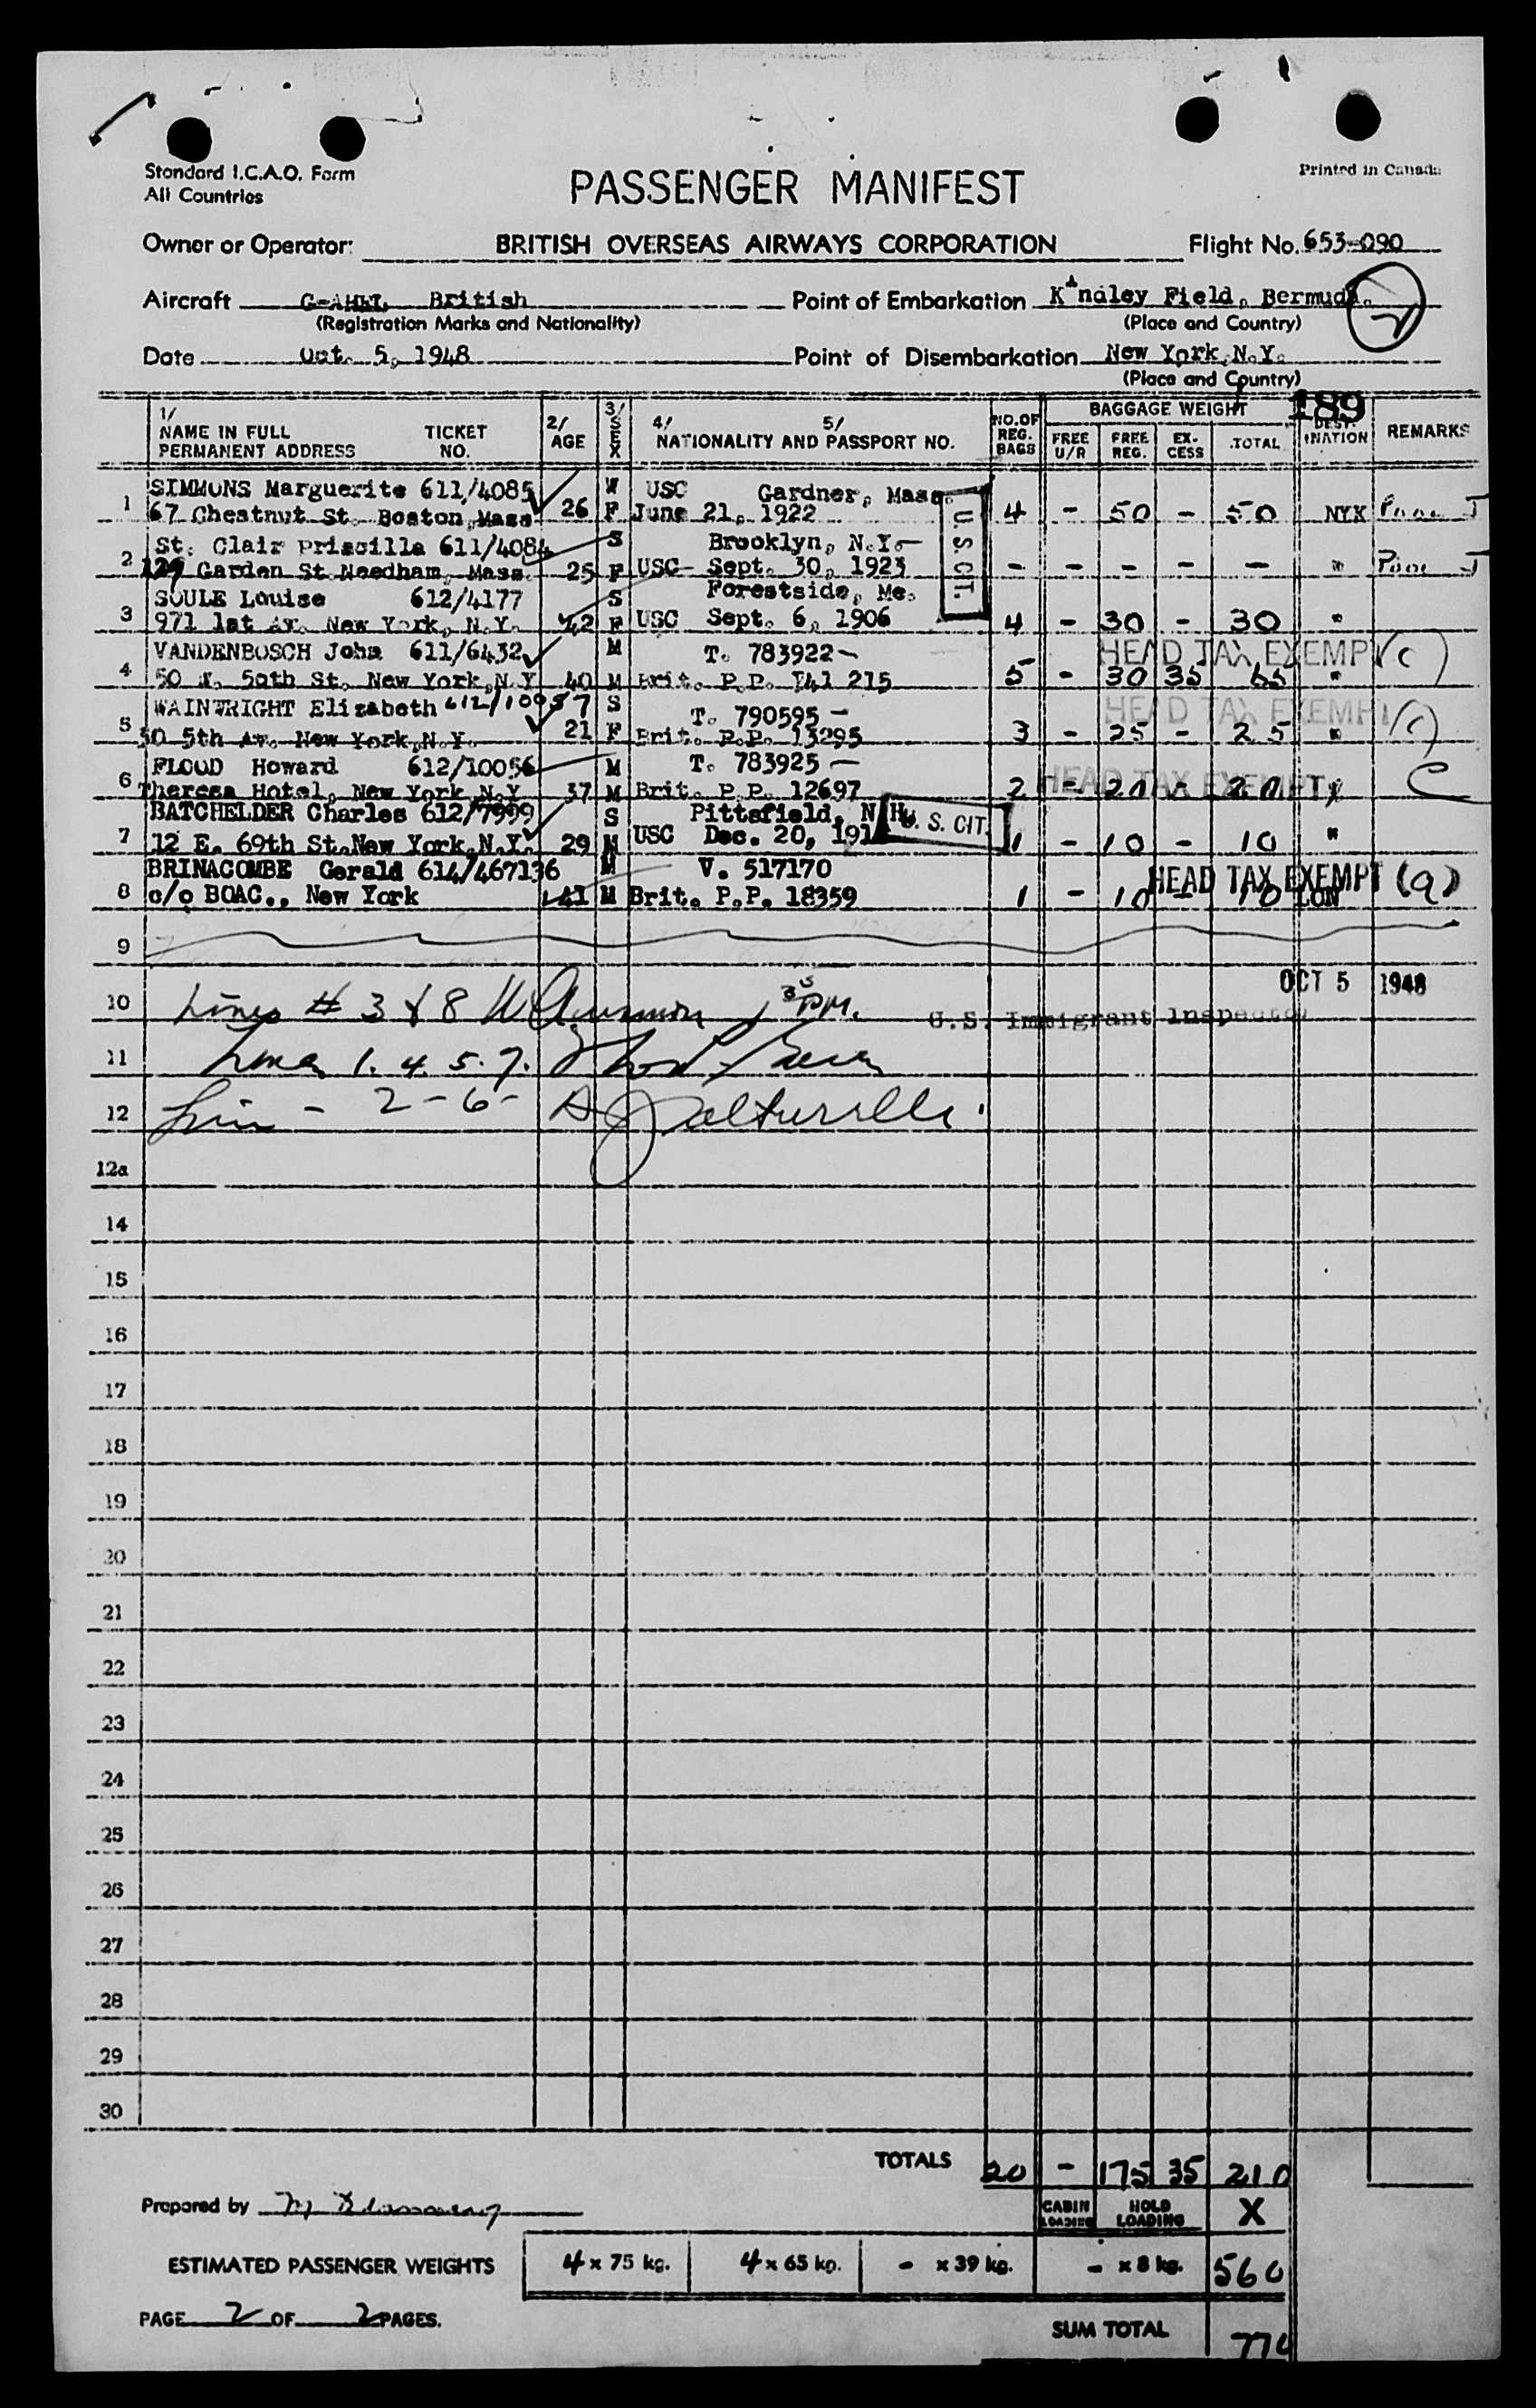 Standard I.C.A.O. Form
All Countries
PASSENGER MANIFEST
Printed in Canada
Owner or Operator: BRITISH OVERSEAS AIRWAYS CORPORATION Flight No. 653-090
Aircraft British Point of Embarkation Kindley Field, Bermuda.
(Registration Marks and Nationality) (Place and Country)
Date Oct. 5, 1948 Point of Disembarkation New York, N.Y.
(Place and Country)
189
1/ NAME IN FULL TICKET 2/ 3/ SEX 4/ 5/ NO. OF BAGGAGE WEIGHT DEST-
PERMANENT ADDRESS NO. AGE NATIONALITY AND PASSPORT NO. REG. BAGS FREE U/R FREE REG. EX-CESS TOTAL INATION REMARKS
SIMMONS Marguerite 611/4085 W USC Gardner, Mass.
1 67 Chestnut St. Boston, Mass 26 F June 21, 1922 4 - 50 - 50 NYK
U.S. CIT.
St. Clair Priscilla 611/4084 S Brooklyn, N.Y.
2 129 Garden St. Needham, Mass. 25 F USC Sept. 30, 1923 - - - - - "
SOULE Louise 612/4177 S Forestside, Me.
3 971 1st Av. New York, N.Y. 42 F USC Sept. 6, 1906 4 - 30 - 30 "
VANDENBOSCH John 611/6432 M T. 783922 HEAD TAX EXEMPT (c)
4 50 50th St. New York, N.Y. 40 M Brit. P.P. 215 5 - 30 35 65 "
WAINWRIGHT Elizabeth 612/10957 S T. 790595 HEAD TAX EXEMPT (c)
5 30 5th Av. New York, N.Y. 21 F Brit. P.P. 13295 3 - 25 - 25 "
FLOOD Howard 612/10056 M T. 783925
6 Theresa Hotel, New York N.Y 37 M Brit. P.P. 12697 2 - 20 - 20 HEAD TAX EXEMPT C
BATCHELDER Charles 612/7999 S Pittsfield, N.H. U.S. CIT.
7 12 E. 69th St. New York, N.Y. 29 M USC Dec. 20, 191 1 - 10 - 10 "
BRINACOMBE Gerald 614/467136 M V. 517170
8 c/o BOAC., New York 41 M Brit. P.P. 18359 1 - 10 - 10 LON HEAD TAX EXEMPT (a)
9
OCT 5 1948
10 Lines # 3 & 8 PM. U.S. Immigrant Inspector
11 Lines 1. 4. 5. 7.
12 Line - 2 - 6 -
12a
14
15
16
17
18
19
20
21
22
23
24
25
26
27
28
29
30
TOTALS 20 - 175 35 210
Prepared by CABIN LOADING HOLD LOADING X
ESTIMATED PASSENGER WEIGHTS 4 x 75 kg. 4 x 65 kg. - x 39 kg. - x 8 kg. 560
PAGE 2 OF 2 PAGES.
SUM TOTAL 770